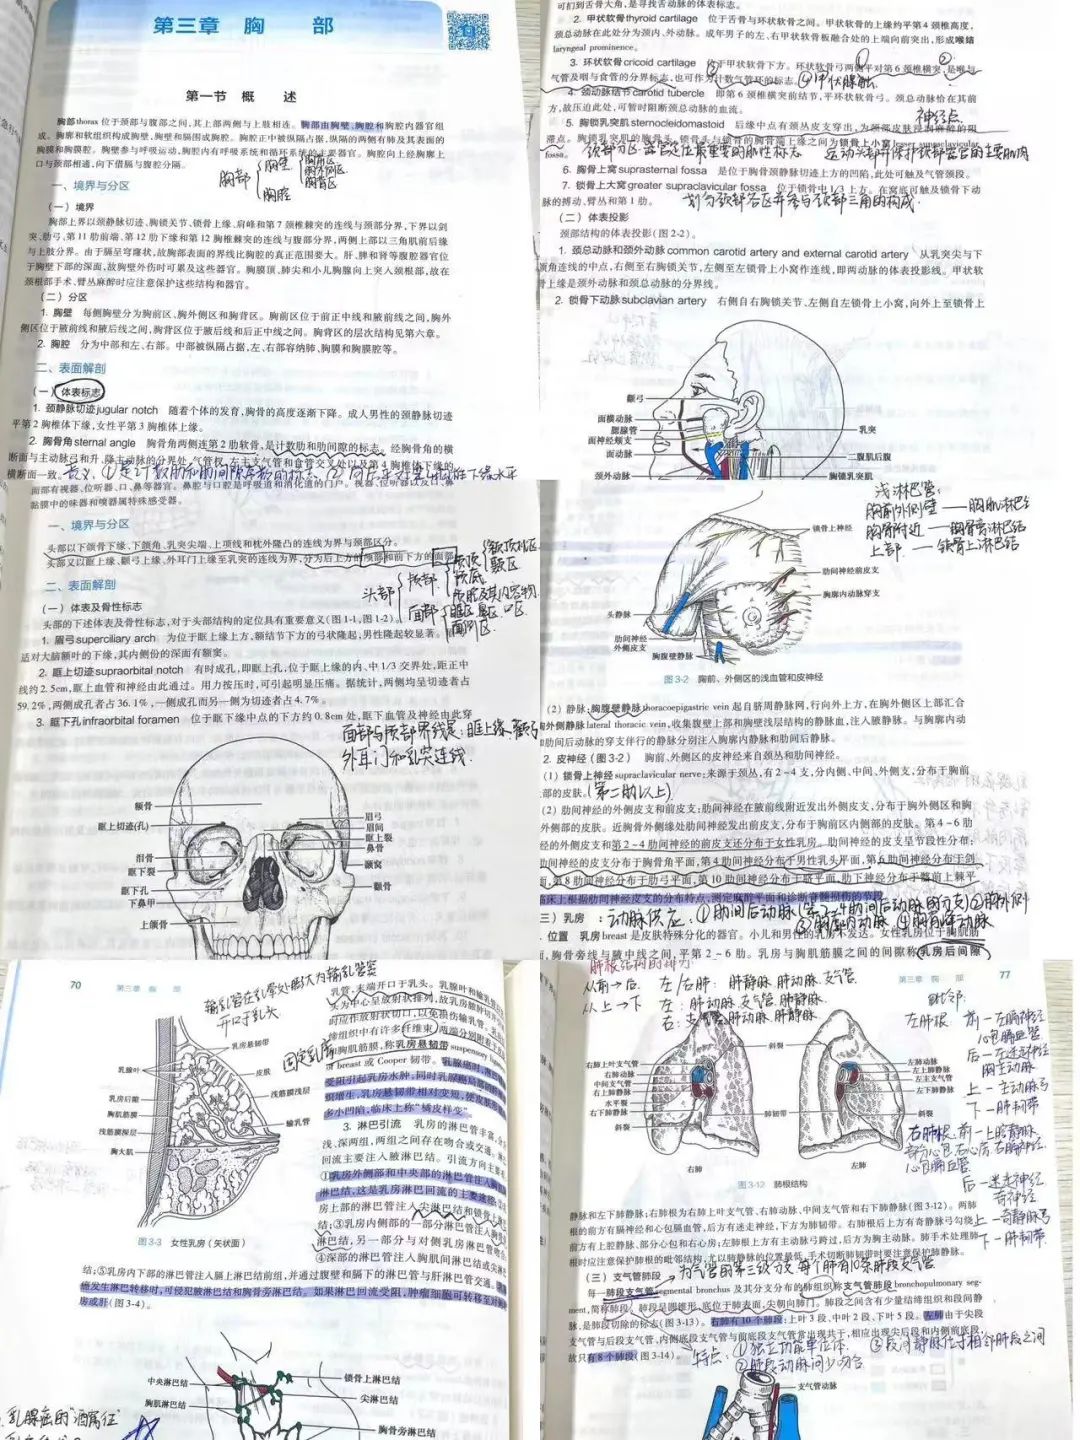 第三章 胸 部
第一节 概 述
胸部thorax位于颈部与腹部之间,其上部两侧与上肢相连。胸部由胸壁、胸腔和胸腔内器官组
成。胸廓和软组织构成胸壁,胸壁和膈围成胸腔。胸腔正中被纵隔占据,纵隔的两侧有肺及其表面的
胸膜和胸膜腔。胸壁参与呼吸运动,胸腔内有呼吸系统和循环系统的主要器官。胸腔向上经胸廓上
口与颈部相通,向下借膈与腹腔分隔。
胸部 胸壁 胸前区
胸外侧区
胸背区
胸腔
一、境界与分区
(一)境界
胸部上界以颈静脉切迹、胸锁关节、锁骨上缘、肩峰和第7颈椎棘突的连线与颈部分界,下界以剑
突、肋弓、第11肋前端、第12肋下缘和第12胸椎棘突的连线与腹部分界,两侧上部以三角肌前后缘
与上肢分界。由于膈呈穹窿状,故胸部表面的界线比胸腔的真正范围要大。肝、脾和肾等腹腔器官位
于胸壁下部的深面,故胸壁外伤时可累及这些器官。胸膜顶、肺尖和小儿胸腺向上突入颈根部,故在
颈根部手术、臂丛麻醉时应注意保护这些结构和器官。
(二)分区
1. 胸壁 每侧胸壁分为胸前区、胸外侧区和胸背区。胸前区位于前正中线和腋前线之间,胸外
侧区位于腋前线和腋后线之间,胸背区位于腋后线和后正中线之间。胸背区的层次结构见第六章。
2. 胸腔 分为中部和左、右部。中部被纵隔占据,左、右部容纳肺、胸膜和胸膜腔等。
二、表面解剖
(一)体表标志
1. 颈静脉切迹jugular notch 随着个体的发育,胸骨的高度逐渐下降。成人男性的颈静脉切迹
平第2胸椎体下缘,女性平第3胸椎体上缘。
2. 胸骨角sternal angle 胸骨角两侧连第2肋软骨,是计数肋和肋间隙的标志。经胸骨角的横
断面与主动脉弓和升、降主动脉的分界处、气管杈、左主支气管和食管交叉处以及第4胸椎体下缘的
横断面一致。
面部有视器、位听器、口、鼻等器官。鼻腔与口腔是呼吸道和消化道的门户。视器、位听器以及口、鼻
黏膜中的味器和嗅器属特殊感受器。
一、境界与分区
头部以下颌骨下缘、下颌角、乳突尖端、上项线和枕外隆凸的连线为界与颈部区分。
头部又以眶上缘、颧弓上缘、外耳门上缘至乳突的连线为界,分为后上方的颅部和前下方的面部
二、表面解剖
头部 颅部 颅顶 额顶枕区
颞区
颅底
颅腔及其内容物
面部 眶区 鼻区 口区
面侧区
(一)体表及骨性标志
头部的下述体表及骨性标志,对于头部结构的定位具有重要意义(图1-1,图1-2)。
1. 眉弓superciliary arch 为位于眶上缘上方,额结节下方的弓状隆起,男性隆起较显著。
适对大脑额叶的下缘,其内侧份的深面有额窦。
2. 眶上切迹supraorbital notch 有时成孔,即眶上孔,位于眶上缘的内、中1/3交界处,距正中
线约2.5cm,眶上血管和神经由此通过。用力按压时,可引起明显压痛。据统计,两侧均呈切迹者占
59.2%,两侧成孔者占36.1%,一侧成孔而另一侧为切迹者占4.7%。
3. 眶下孔infraorbital foramen 位于眶下缘中点的下方约0.8cm处,眶下血管及神经由此穿
面部与颅部界线是:眶上缘、颧弓
外耳门和乳突连线.
额骨
眶上切迹(孔)
泪骨
眶下裂
眶下孔
下鼻甲
上颌骨
眉弓
眉间
眶上裂
鼻骨
颞窝
颧骨
可扪到舌骨大角,是寻找舌动脉的体表标志。
2. 甲状软骨thyroid cartilage 位于舌骨与环状软骨之间。甲状软骨的上缘约平第4颈椎高度,
颈总动脉在此处分为颈内、外动脉。成年男子的左、右甲状软骨板融合处的上端向前突出,形成喉结
laryngeal prominence。
3. 环状软骨cricoid cartilage 位于甲状软骨下方。环状软骨弓两侧平对第6颈椎横突,是喉与
气管及咽与食管的分界标志,也可作为计数气管环的标志。
4. 颈动脉结节carotid tubercle 即第6颈椎横突前结节,平环状软骨弓。颈总动脉恰在其前
方,故压迫此处,可暂时阻断颈总动脉的血流。
神经点
5. 胸锁乳突肌sternocleidomastoid 后缘中点有颈丛皮支穿出,为颈部皮肤浸润麻醉的阻
滞点。胸锁乳突肌的胸骨头、锁骨头与锁骨的胸骨端上缘之间为锁骨上小窝lesser supraclavicular
fossa。
6. 胸骨上窝suprasternal fossa 是位于胸骨颈静脉切迹上方的凹陷,此处可触及气管颈段。
7. 锁骨上大窝greater supraclavicular fossa 位于锁骨中1/3上方。在窝底可触及锁骨下动
脉的搏动、臂丛和第1肋。
(二)体表投影
颈部结构的体表投影(图2-2)。
1. 颈总动脉和颈外动脉common carotid artery and external carotid artery 从乳突尖与下
颌角连线的中点,右侧至右胸锁关节,左侧至左锁骨上小窝作连线,即两动脉的体表投影线。甲状软
骨上缘是颈外动脉和颈总动脉的分界线。
2. 锁骨下动脉subclavian artery 右侧自右胸锁关节、左侧自左锁骨上小窝,向外上至锁骨上
颧弓
面横动脉
腮腺管
面神经颊支
面动脉
颈外动脉
乳突
二腹肌后腹
胸锁乳突肌
浅淋巴管:
胸前外侧壁——胸肌淋巴结
胸骨附近——胸骨旁淋巴结
上部——锁骨上淋巴结
锁骨上神经
肋间神经前皮支
胸廓内动脉穿支
头静脉
肋间神经
外侧皮支
胸腹壁静脉
图3-2 胸前、外侧区的浅血管和皮神经
(2) 静脉:胸腹壁静脉thoracoepigastric vein起自脐周静脉网,行向外上方,在胸外侧区上部汇合
胸外侧静脉lateral thoracic vein,收集腹壁上部和胸壁浅层结构的静脉血,注入腋静脉。与胸廓内动
和肋间后动脉的穿支伴行的静脉分别注入胸廓内静脉和肋间后静脉。
2. 皮神经(图3-2) 胸前、外侧区的皮神经来自颈丛和肋间神经。
(1) 锁骨上神经supraclavicular nerve:来源于颈丛,有2~4支,分内侧、中间、外侧支,分布于胸前
上部的皮肤。(第二肋以上)
(2) 肋间神经的外侧皮支和前皮支:肋间神经在腋前线附近发出外侧皮支,分布于胸外侧区和胸
外侧部的皮肤。近胸骨外侧缘处肋间神经发出前皮支,分布于胸前区内侧部的皮肤。第4~6肋
经的外侧皮支和第2~4肋间神经的前皮支还分布于女性乳房。肋间神经的皮支呈节段性分布:
肋间神经的皮支分布于胸骨角平面,第4肋间神经分布于男性乳头平面,第6肋间神经分布于剑
面,第8肋间神经分布于肋弓平面,第10肋间神经分布于脐平面,肋下神经分布于髂前上棘平
临床上根据肋间神经皮支的分布特点,测定麻醉平面和诊断脊髓损伤的节段
(三)乳房 :动脉供应:
1. 位置 乳房breast是皮肤特殊分化的器官。小儿和男性的乳房不发达。女性乳房位于胸肌筋
面,胸骨旁线与腋中线之间,平第2~6肋。乳房与胸肌筋膜之间的间隙称乳房后间隙
70 第三章 胸 部
输乳管在乳晕处膨大为输乳管窦
开口于乳头
固定乳房
乳房悬韧带
皮肤
浅筋膜浅层
输乳管
乳腺叶
乳房后隙
胸肌筋膜
浅筋膜深层
胸大肌
图3-3 女性乳房(矢状面)
乳管,末端开口于乳头。乳腺叶和输乳管
为中心呈放射状排列,故乳房脓肿切
时应作放射状切口,以免损伤输乳管。乳
缔组织中有许多纤维束,两端分别附着于
和胸肌筋膜,称乳房悬韧带suspensory
of breast或Cooper韧带。乳腺癌时,淋巴
受阻引起乳房水肿,同时乳腺癌局部的
织增生,乳房悬韧带相对变短,使皮肤形
多小凹陷,临床上称“橘皮样变”
3. 淋巴引流 乳房的淋巴管丰富,分
浅、深两组,两组之间存在吻合或交通。淋
回流主要注入腋淋巴结。引流方向主要
①乳房外侧部和中央部的淋巴管注入胸肌
巴结,这是乳房淋巴回流的主要途径;②
房上部的淋巴管注入尖淋巴结和锁骨上
结;③乳房内侧部的一部分淋巴管注入
淋巴结,另一部分与对侧乳房淋巴管吻合
④深部的淋巴管注入胸肌间淋巴结或尖淋
结;⑤乳房内下部的淋巴管注入膈上淋巴结前组,并通过腹壁和膈下的淋巴管与肝淋巴管交通。
癌发生淋巴转移时,可侵犯腋淋巴结和胸骨旁淋巴结。如果淋巴回流受阻,肿瘤细胞可转移至对侧
房或肝(图3-4)。
中央淋巴结
胸肌淋巴结
锁骨上淋巴结
尖淋巴结
胸骨旁淋巴结
乳腺癌的“酒窝征”
肺根结构的排列:
从前→后 左/右肺: 肺静脉.肺动脉.支气管.
从上→下 左:肺动脉.支气管.肺静脉.
右:支气管.肺动脉.肺静脉.
第三章 胸 部 77
斜裂
右肺上叶支气管
右肺动脉
中间支气管
右上肺静脉
水平裂
右下肺静脉
斜裂
肺韧带
左肺动脉
左上肺静脉
左主支气管
左下肺静脉
斜裂
右肺
左肺
图3-12 肺根结构
毗邻:
左肺根 前—左膈神经
心包膈血管
后—左迷走神经
胸主动脉
上—主动脉弓
下—肺韧带
右肺根 前—上腔静脉.
部分心包.右心房.右膈神经.
心包膈血管
后—迷走神经
奇神经
上—奇静脉弓
下—肺韧带.
静脉和左下肺静脉;右肺根为右肺上叶支气管、右肺动脉、中间支气管和右下肺静脉(图3-12)。两肺
根的前方有膈神经和心包膈血管,后方有迷走神经,下方为肺韧带。右肺根后上方有奇静脉弓勾绕
前方有上腔静脉、部分心包和右心房;左肺根上方有主动脉弓跨过,后方为胸主动脉。肺手术处理肺
根时应注意肺根的毗邻结构,尤以肺静脉的位置最低,手术切断肺韧带时要注意保护肺静脉。
(三)支气管肺段 为气管的第三级分支 每个肺有10条肺段支气管
每一肺段支气管segmental bronchus及其分支分布的肺组织称支气管肺段bronchopulmonary seg-
ment,简称肺段。肺段呈圆锥形,底位于肺表面,尖朝向肺门。肺段之间含有少量结缔组织和段间静
脉,是肺段切除的标志(图3-13)。右肺有10个肺段:上叶3段、中叶2段、下叶5段。左肺由于尖段
支气管与后段支气管、内侧底段支气管与前底段支气管常出现共干,相应出现尖后段和内侧前底段,
故只有8个肺段(图3-14)。
特点: ①独立功能单位体.
②肺段动脉间少吻合
③段间静脉位于相邻肺段之间
支气管动脉